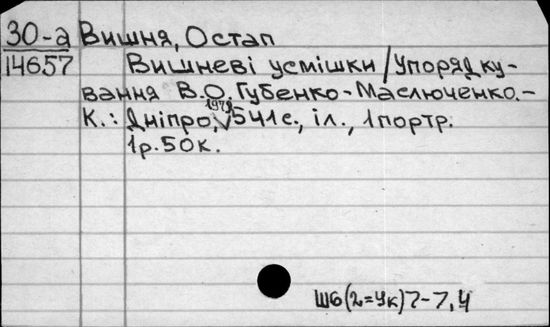 30-а Вишня, Остап
14657 Вишневі усмішки / Упорядку-
вання В.О. Губенко-Маслюченко.-
К.: Дніпро, 1979 541 с., іл., 1 портр.
1р. 50к.
Ш6(2=Ук)7-7,4